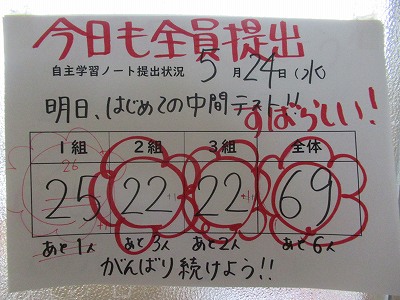 今日も全員提出
自主学習ノート提出状況 5月24日(水)
明日、はじめての中間テスト!!
すばらしい!
1組 2組 3組 全体
26
25 22 22 69
+1 +1
あと1人 あと3人 あと2人 あと6人
がんばり続けよう!!